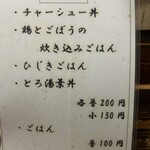 ・チャーシュー丼
・鶏とごぼうの
炊き込みごはん
・ひじきごはん
・とろ湯葉丼
各普200円
小150円
・ごはん
普100円